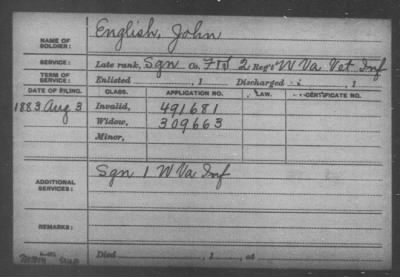 NAME OF SOLDIER: English, John
SERVICE: Late rank, Sgn Co. F&S 2 Reg't W Va Vet Inf
TERM OF SERVICE: Enlisted , 1 Discharged , 1
DATE OF FILING. CLASS. APPLICATION NO. LAW. CERTIFICATE NO.
1883 Aug 3 Invalid, 491681
Widow, 309663
Minor,
ADDITIONAL SERVICES: Sgn 1 W Va Inf
REMARKS:
Died , 1 , at